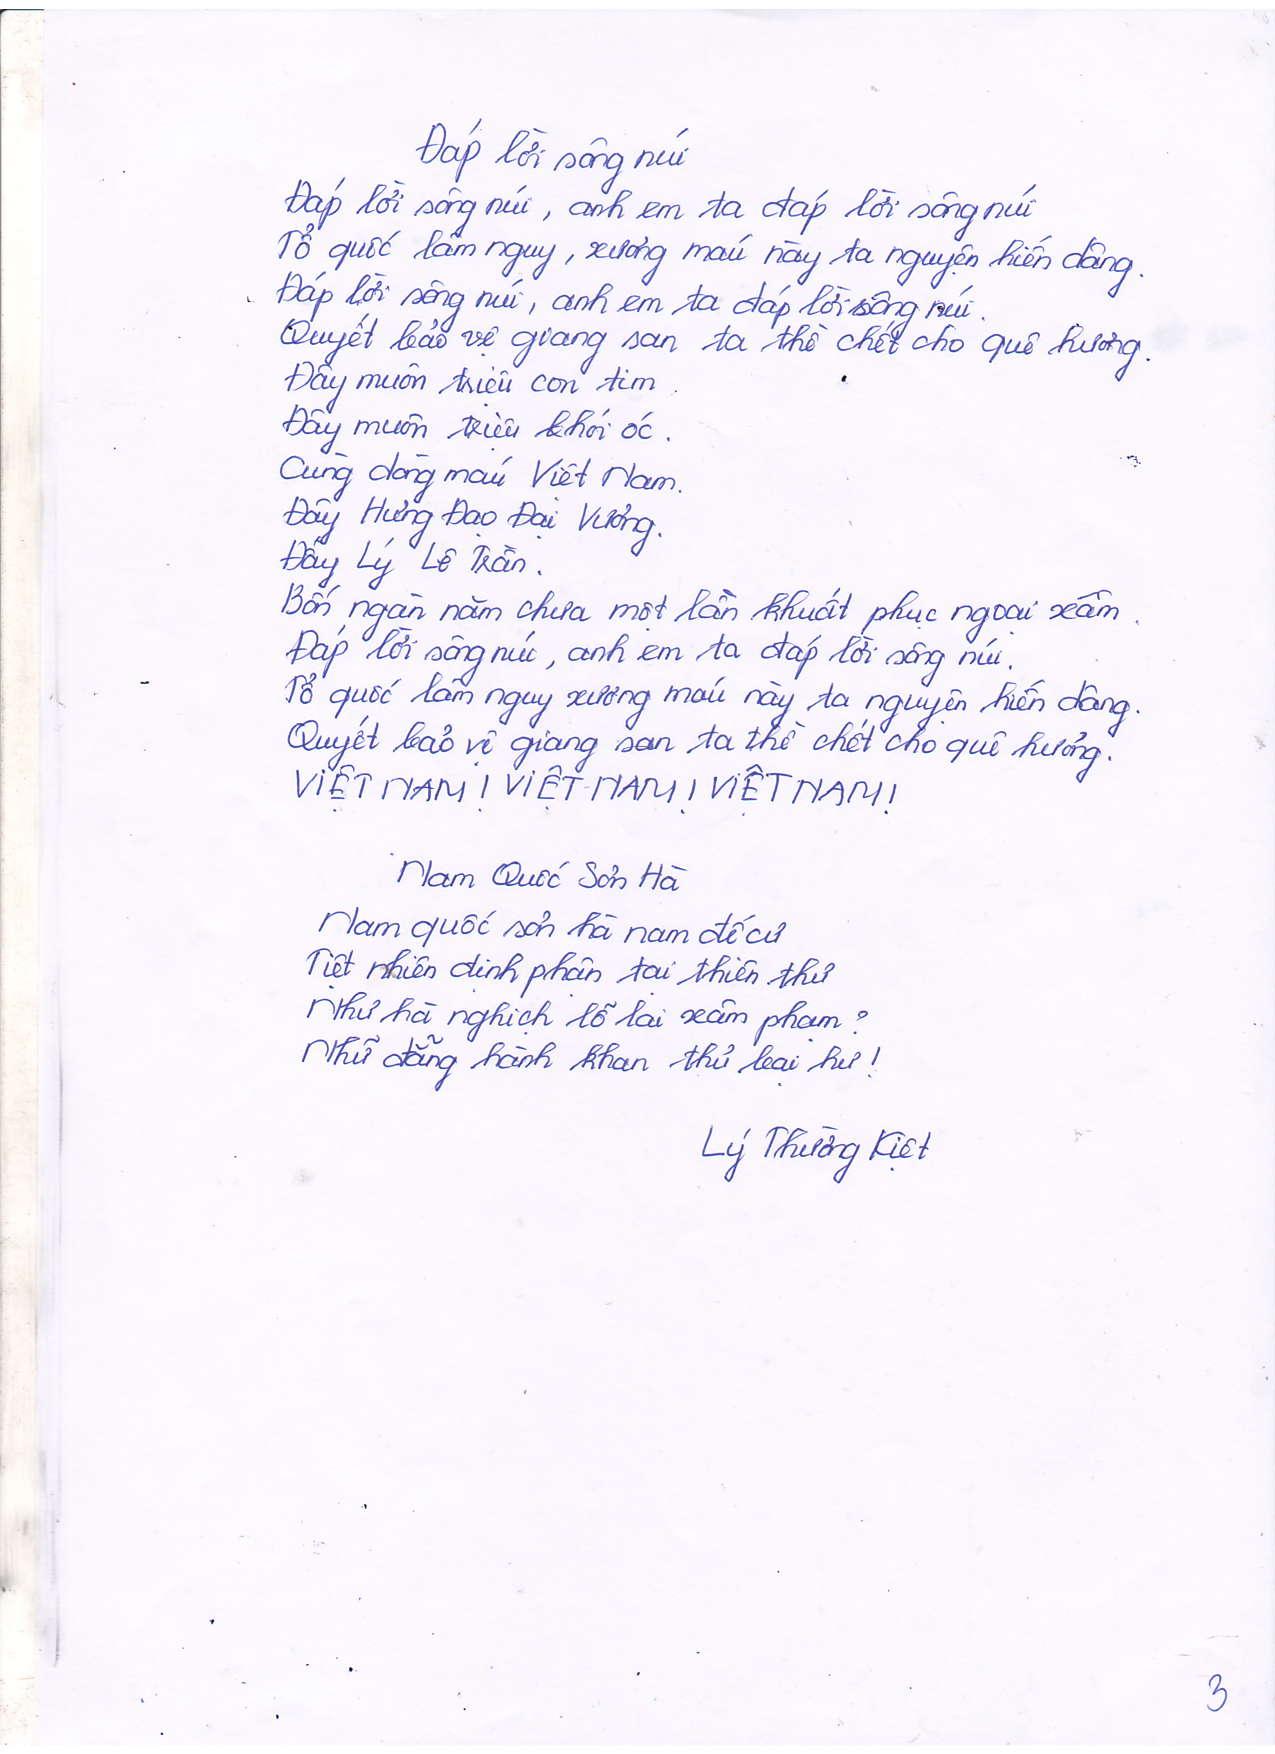 Đáp lời sông núi
Đáp lời sông núi, anh em ta đáp lời sông núi
Tổ quốc lâm nguy, xương máu này ta nguyện hiến dâng.
Đáp lời sông núi, anh em ta đáp lời sông núi.
Quyết bảo vệ giang san ta thề chết cho quê hương.
Đây muôn triệu con tim.
Đây muôn triệu khối óc.
Cùng dòng máu Việt Nam.
Đây Hưng Đạo Đại Vương.
Đây Lý Lê Trần.
Bốn ngàn năm chưa một lần khuất phục ngoại xâm.
Đáp lời sông núi, anh em ta đáp lời sông núi.
Tổ quốc lâm nguy xương máu này ta nguyện hiến dâng.
Quyết bảo vệ giang san ta thề chết cho quê hương.
VIỆT NAM! VIỆT NAM! VIỆT NAM!
Nam Quốc Sơn Hà
Nam quốc sơn hà nam đế cư
Tiệt nhiên định phận tại thiên thư
Như hà nghịch lỗ lai xâm phạm?
Nhữ đẳng hành khan thủ bại hư!
Lý Thường Kiệt
3